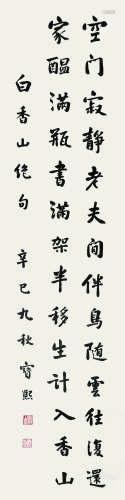 空门寂静老夫间伴鸟随雲往復還
家醖满瓶書满架半移生计入香山
白香山绝句
辛巳九秋寶熙